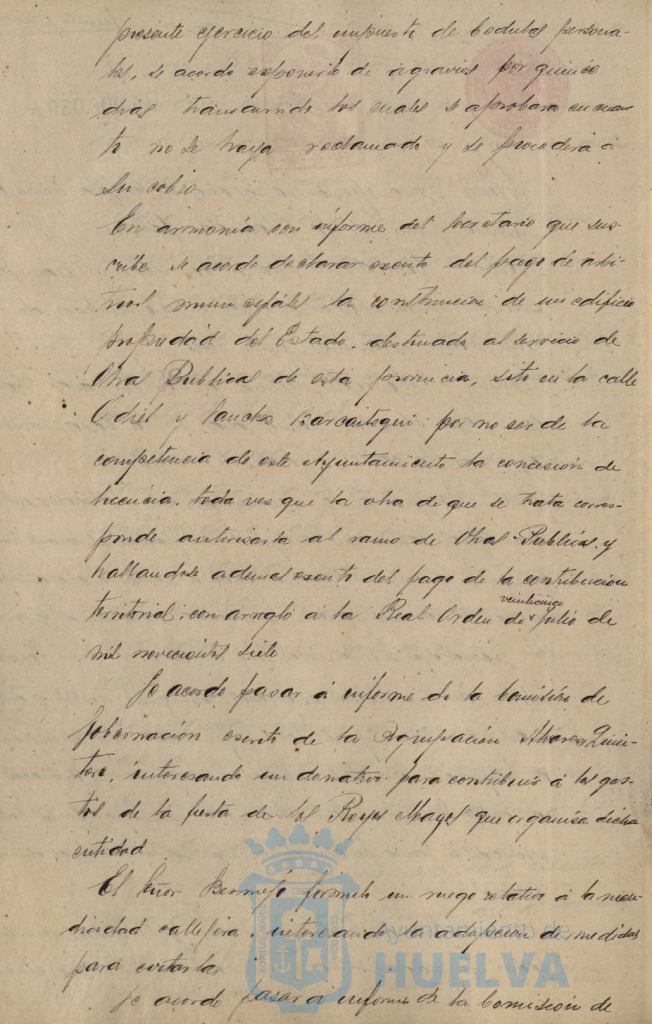 presente ejercicio del impuesto de Cedulas persona-
les, se acordo exponerlo de agravios por quince
dias transcurrido los cuales se aprobara en cuan-
to no se haya reclamado y se procederá á
su cobro
En armonía con informe del Secretario que sus-
cribe se acordo declarar exento del pago de arbi-
trios municipales la construccion de un edificio
propiedad del Estado, destinado al servicio de
Obras Publicas de esta provincia, sito en la calle
Odiel y Sanchez Barcaiztegui por no ser de la
competencia de este Ayuntamiento la concesión de
licencia, toda vez que la obra de que se trata corres-
ponde autorizarla al ramo de Obras Publicas y
hallandose ademas exento del pago de la contribucion
territorial, con arreglo á la Real Orden de veinticinco Julio de
mil novecientos siete
Se acordo pasar á informe de la Comisión de
Gobernación escrito de la Agrupación Alvarez Quin-
tero, interesando un donativo para contribuir á los gas-
tos de la fiesta de los Reyes Magos que organiza dicha
entidad
El Señor Bermejo formuló un ruego relativo á la men-
dicidad callejera, interesando la adopcion de medidas
para cortarla
Se acordo pasar á informe de la Comision de
Ayuntamiento de
HUELVA